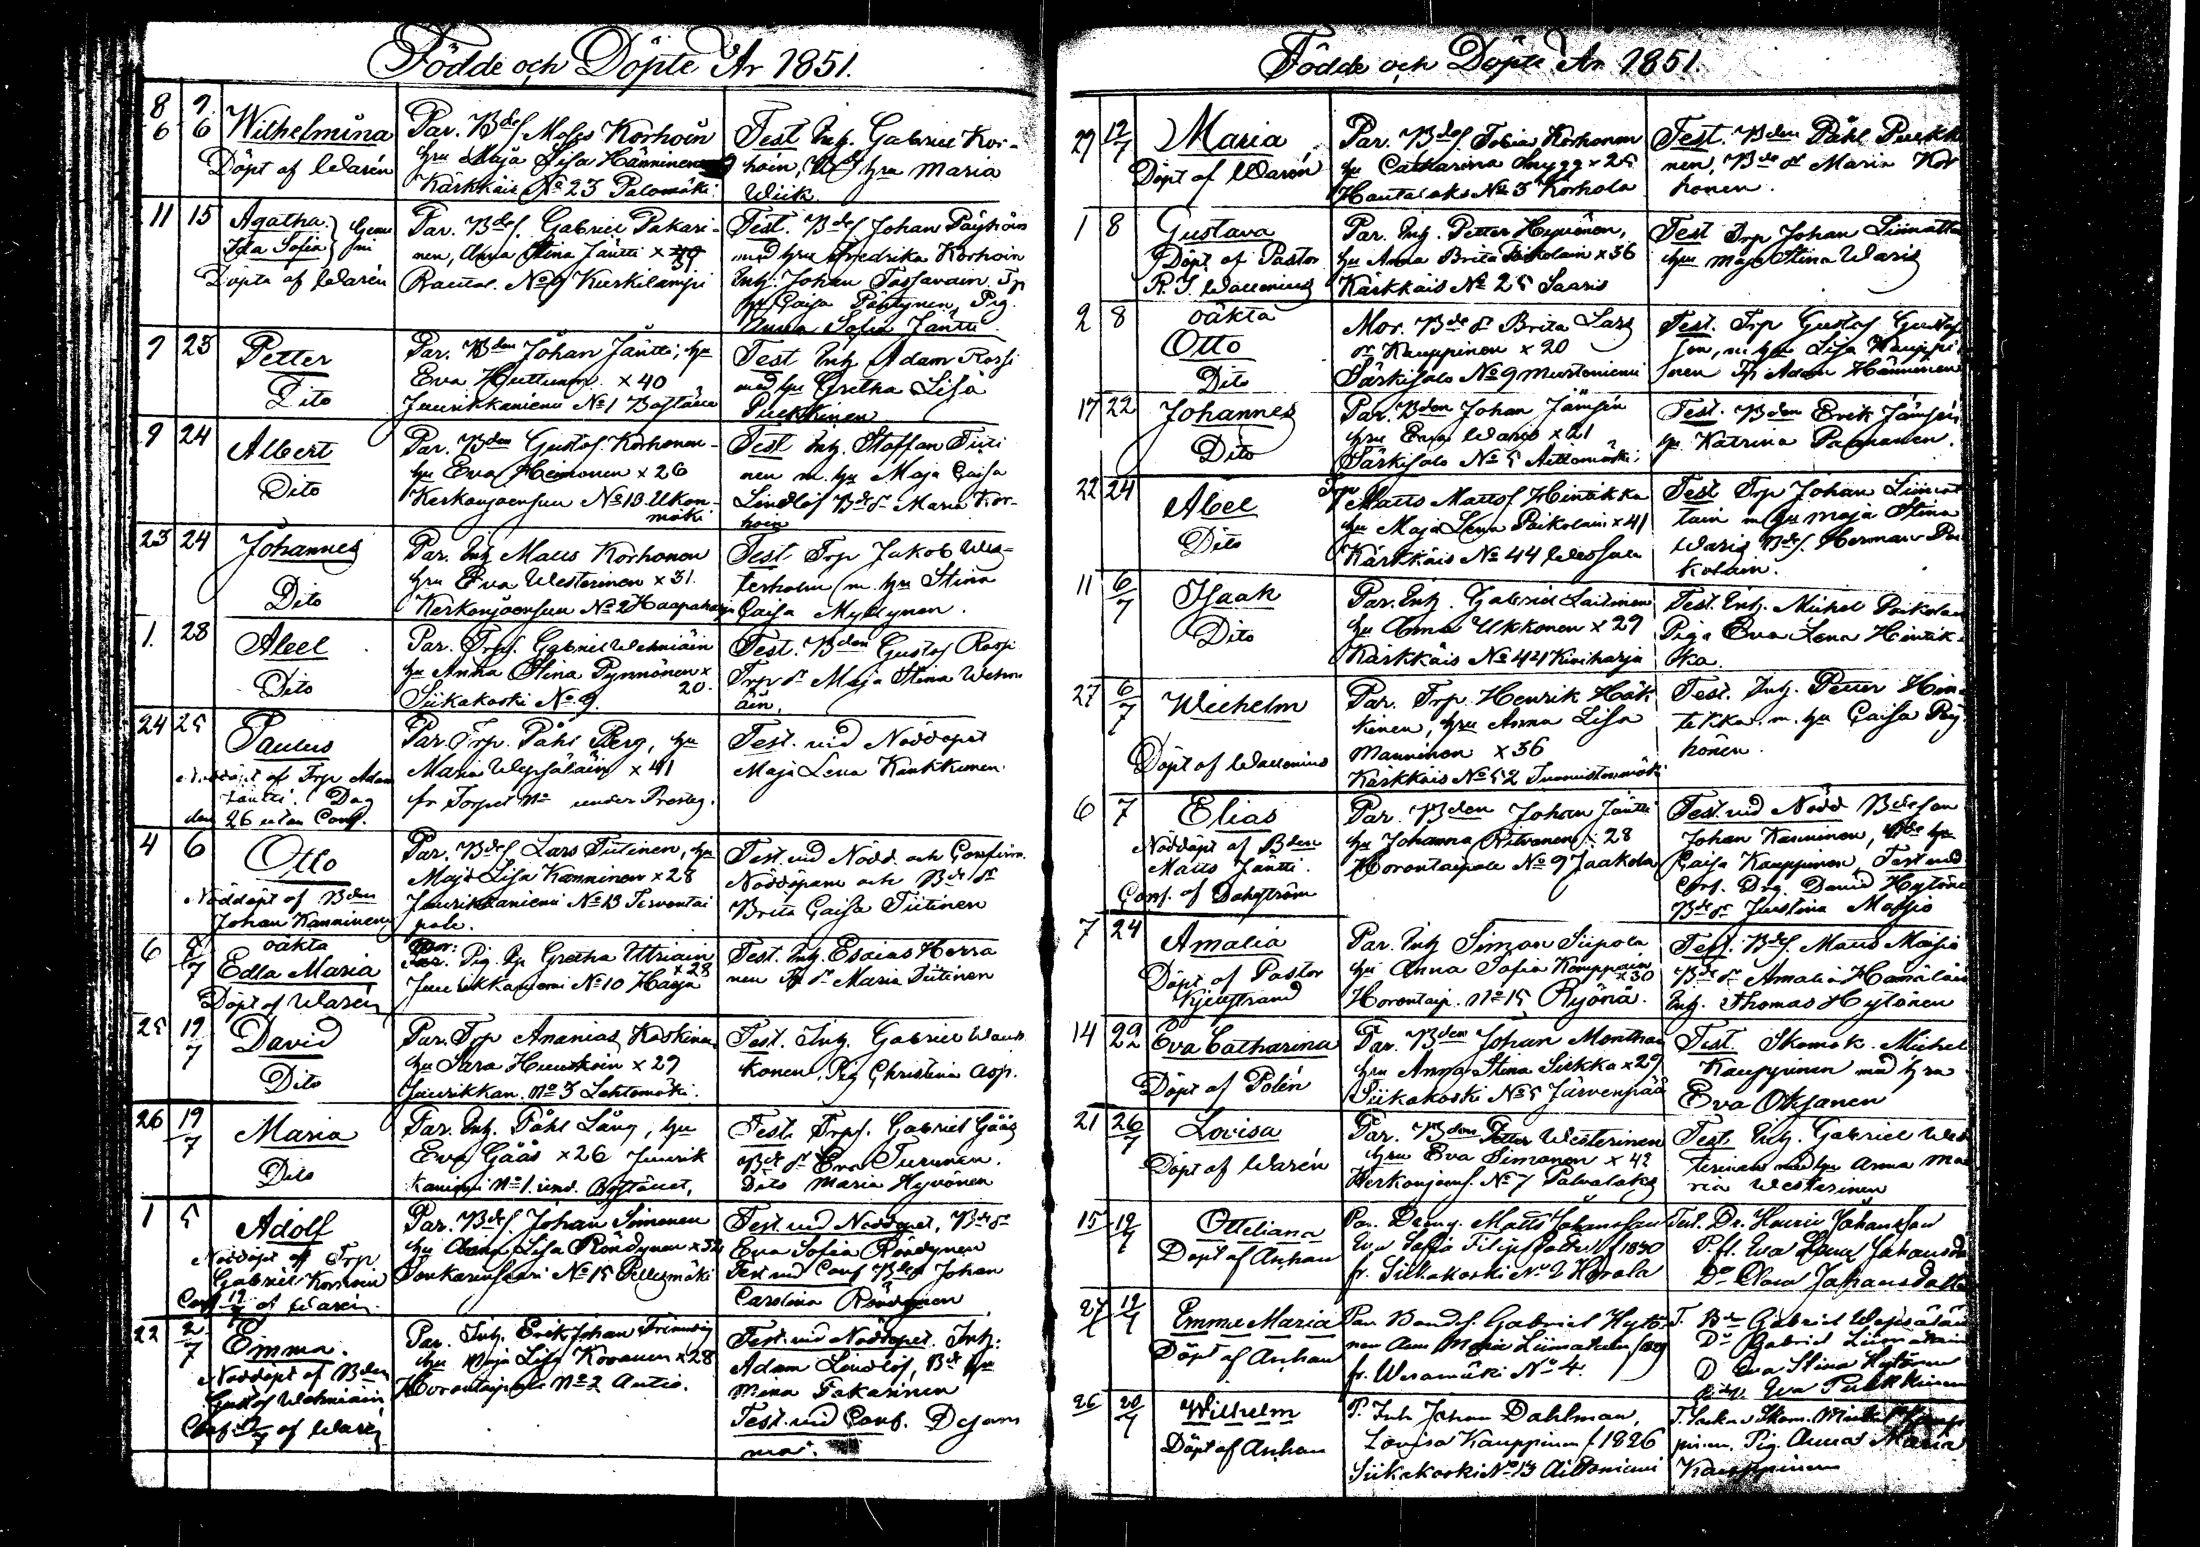 Födde och Döpte År 1851.
8/6 9/6 Wilhelmina
Döpt af Warén
Par. Bdes. Moses Korhoin
hru Maja Lisa Hänninen
Kärkkäis No 23 Palomäki
Test Inh. Gabriel Kor-
hoin, hru Maria
Wiik
11 15 Agatha
Ida Sofia
Döpta af Warén
Par. Bdes. Gabriel Pakari-
nen, Anna Stina Jäntti x
31
Rautal. No 9 Kurkilampi
Test. Bdes Johan Päyhöin
med hru Fredrika Korhoin
Inh. Johan Tossavain
Caisa Pöntynen, Pig.
Anna Sofia Jäntti
7 23 Petter
Dito
Par. Bden Johan Jäntti, hu
Eva Huttunen x 40
Juurikkaniemi No 1
Test Inh. Adam Rossi
med hu Gretha Lisa
Puckkinen
9 24 Albert
Dito
Par. Bden Gustaf Korhonen
hu Eva Hemonen x 26
Kerkonjoensuu No 13 Ukon-
mäki
Test Inh. Staffan Tiiti
nen m. hu Maja Caisa
Lindlöf Bde dr Maria Kor-
hoin
23 24 Johannes
Dito
Par. Inh Matts Korhonen
hru Eva Westerinen x 31.
Kerkonjoensuu No 2 Haapaharju
Test Trp Jakob Wes-
terholm m. hu Stina
Caisa Myllynen.
1. 28 Abel
Dito
Par. Trps. Gabriel Wehniäin
hu Anna Stina Pynnönen x
20.
Siikakoski No 9.
Test. Bden Gustaf Rossi
Trp dr Maja Stina Wehni
äin.
24 25 Paulus
Nöddöpt af Trp Adam
Jäntti. Dag
den 26 utan Conf.
Par. Trp. Påhl Berg, hu
Maria Wepsäläin x 41
fr Torpet No under Prestg.
Test. vid Nöddopet
Maja Lena Kankkunen.
4 6 Otto
Nöddöpt af Bden
Johan Kanninen
Par. Bdes Lars Tiitinen, hu
Maja Lisa Kanninen x 28
Juurikkaniemi No 13 Tervontai
pale.
Test. vid Nödd. och Confirm.
Nöddöparne och Bde dr
Brita Caisa Tiitinen
6 8/7 oäkta
Edla Maria
Döpt af Warén
Mor: Pig. Gretha Uttriain
x 28
Juurikkaniemi No 10 Harju
Test. Inh. Esaias Herra
nen dr Maria Tiitinen
25 19/7 David
Dito
Par. Trp Ananias Koskinen
hu Sara Huuskoin x 29
Juurikkan. No 3 Lehtomäki.
Test. Inh. Gabriel
konen, Pig Christina Asp.
26 19/7 Maria
Dito
Par. Inh. Påhl Lång, hu
Eva Gåås x 26 Juurik
kaniemi No 1. und. Bostället.
Test. Trps. Gabriel Gåås
Bde dr Eva Turunen.
Dito Maria Hyvönen
1 5 Adolf
Nöddöpt af Trp.
Gabriel Korhoin
Conf 19/7 af Warén
Par. Bdes. Johan Simonen
hu Lisa Röndynen x 32
Sonkarinsaari No 15 Pellesmäki
Test. vid Nöddopet, Bde dr
Eva Sofia Röndynen
Test vid Conf Bdes Johan
Carolina Röndynen
22 2/7 Emma.
Nöddöpt af Bden
Gustaf Wehniäin
Conf 19/7 af Warén
Par. Inh. Erik Johan
hu Maja Lisa Kovanen x 28
Horontaipale No 2 Antio.
Test. vid Nöddopet. Inh:
Adam Lindlöf, Bde hu
Mina Pakarinen
Test. vid Conf. De sam
ma.
Födde och Döpte År 1851.
29 12/7 Maria
Döpt af Warén
Par. Bdes. Tobias Korhonen
hu Catharina Snygg x 25
Hantalaks No 3 Korhola
Test. Bden Påhl Puckki
nen, Bde dr Maria Kor
honen.
1 8 Gustava
Döpt af Pastor
R. J. Wallenius
Par. Inh. Petter Hyvönen,
hu Anna Brita Poikolain x 36
Kärkkäis No 25 Saaris
Test Trp Johan Liimatta
hru Maja Stina Waris
2 8 oäkta
Otto
Dito
Mor. Bde dr Brita Lars
dr Kauppinen x 20
Särkisalo No 9 Mustoniemi
Test. Trp Gustaf Gustaf
son, m. hru Lisa Kauppi
nen Adam Hänninen
17 22 Johannes
Dito
Par. Bden Johan Jämsén
hru Eva Waris x 21
Särkisalo No 5 Aittomäki
Test. Bden Erik Jämsén
hu Katrina Paananen.
22 24 Abel
Dito
Trp Matts Matts Hintikka
hu Maja Lena Poikolain x 41
Kärkkäis No 44
Test Trp Johan Liimat
tain m hru Maja Stina
Waris Bdes. Herman Poi
kolain.
11 6/7 Isaak
Dito
Par. Inh. Gabriel Laitinen
hu Anna Ukkonen x 29
Kärkkäis No 44 Kiviharju
Test. Inh. Michel Poikolain
Piga Eva Lena Hintik-
ka.
27 6/7 Wilhelm
Döpt af Wallenius
Par. Trp. Henrik Häk
kinen, hru Anna Lisa
Manninen x 36
Kärkkäis No 52 Tuomistonmäki
Test. Inh. Petter Hin
tikka. m. hu Caisa Päy
hönen.
6 7 Elias
Nöddöpt af Bden
Matts Jäntti.
Conf. af Dahlström
Par. Bden Johan Jäntti
hu Johanna Ritvanen x 28
Horontaipale No 9 Jaakola
Test. vid Nödd Bdesson
Johan Kanninen, Bde hu
Caisa Kauppinen, Test vid
Conf. Drg. David Hytöne
Bde dr Justina Massio
7 24 Amalia
Döpt af Pastor
Kjellstrand
Par. Inh Simon Siipola
hu Anna Sofia Kauppain
x 30
Horontaip. No 15 Ryönä.
Test. Bdes Matts Massio
Bde dr Amalia Hämäläin
Inh. Thomas Hytönen
14 22/22 Eva Catharina
Döpt af Polén
Par. Bden Johan Monthan
hru Anna Stina Sirkka x 29
Siikakoski No 5 Järvenpää
Test. Skomak. Michel
Kauppinen med hru
Eva Oksanen
21 26/7 Lovisa
Döpt af Warén
Par. Bden Petter Westerinen
hru Eva Simonen x 42
Kerkonjoens. No 7 Palvalaks
Test. Inh. Gabriel Wes
terinen med hu Anna Ma
ria Westerinen
15 19/7 Otteliana
Döpt af Anhan
Par. Dreng. Matts Johansson
Eva Sofia Filipsdotter f 1830
fr. Siikakoski No 2 Horola
Test. Dr. Henric Johansson
P. fl. Eva Lena Johansdr
Do Clara Johansdotter
27 19/7 Emma Maria
Döpt af Anhan
Par Bondes. Gabriel Hytö-
nen Anna Maria Liimatain
fr. Wesamäki No 4.
T. Bde Gabriel Wepsäläin
Do Gabriel Liimatain
D Eva Stina Hytönen
Eva Pulkkinen
26 20/7 Wilhelm
Döpt af Anhan
P. Inh Johan Dahlman,
Lovisa Kauppinen f. 1826
Siikakoski No 13 Aittoniemi
T. Skom. Michel Kaup
pinen, Pig. Anna Maria
Kauppinen